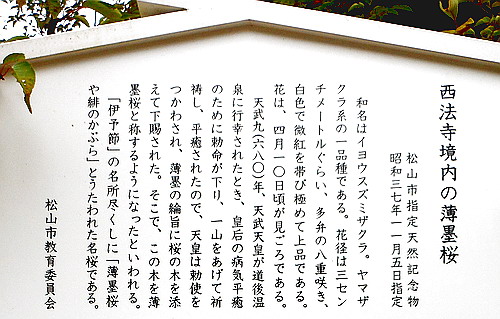 西法寺境内の薄墨桜
松山市指定天然記念物
昭和三七年一一月五日指定
和名はイヨウスズミザクラ。ヤマザ
クラ系の一品種である。花径は三セン
チメートルぐらい、多弁の八重咲き、
白色で微紅を帯び極めて上品である。
花は、四月一〇日頃が見ごろである。
天武九(六八〇)年、天武天皇が道後温
泉に行幸されたとき、皇后の病気平癒
のために勅命が下り、一山をあげて祈
祷し、平癒されたので、天皇は勅使を
つかわされ、薄墨の綸旨に桜の木を添
えて下賜された。そこで、この木を薄
墨桜と称するようになったといわれる。
「伊予節」の名所尽くしに「薄墨桜
や緋のかぶら」とうたわれた名桜である。
松山市教育委員会